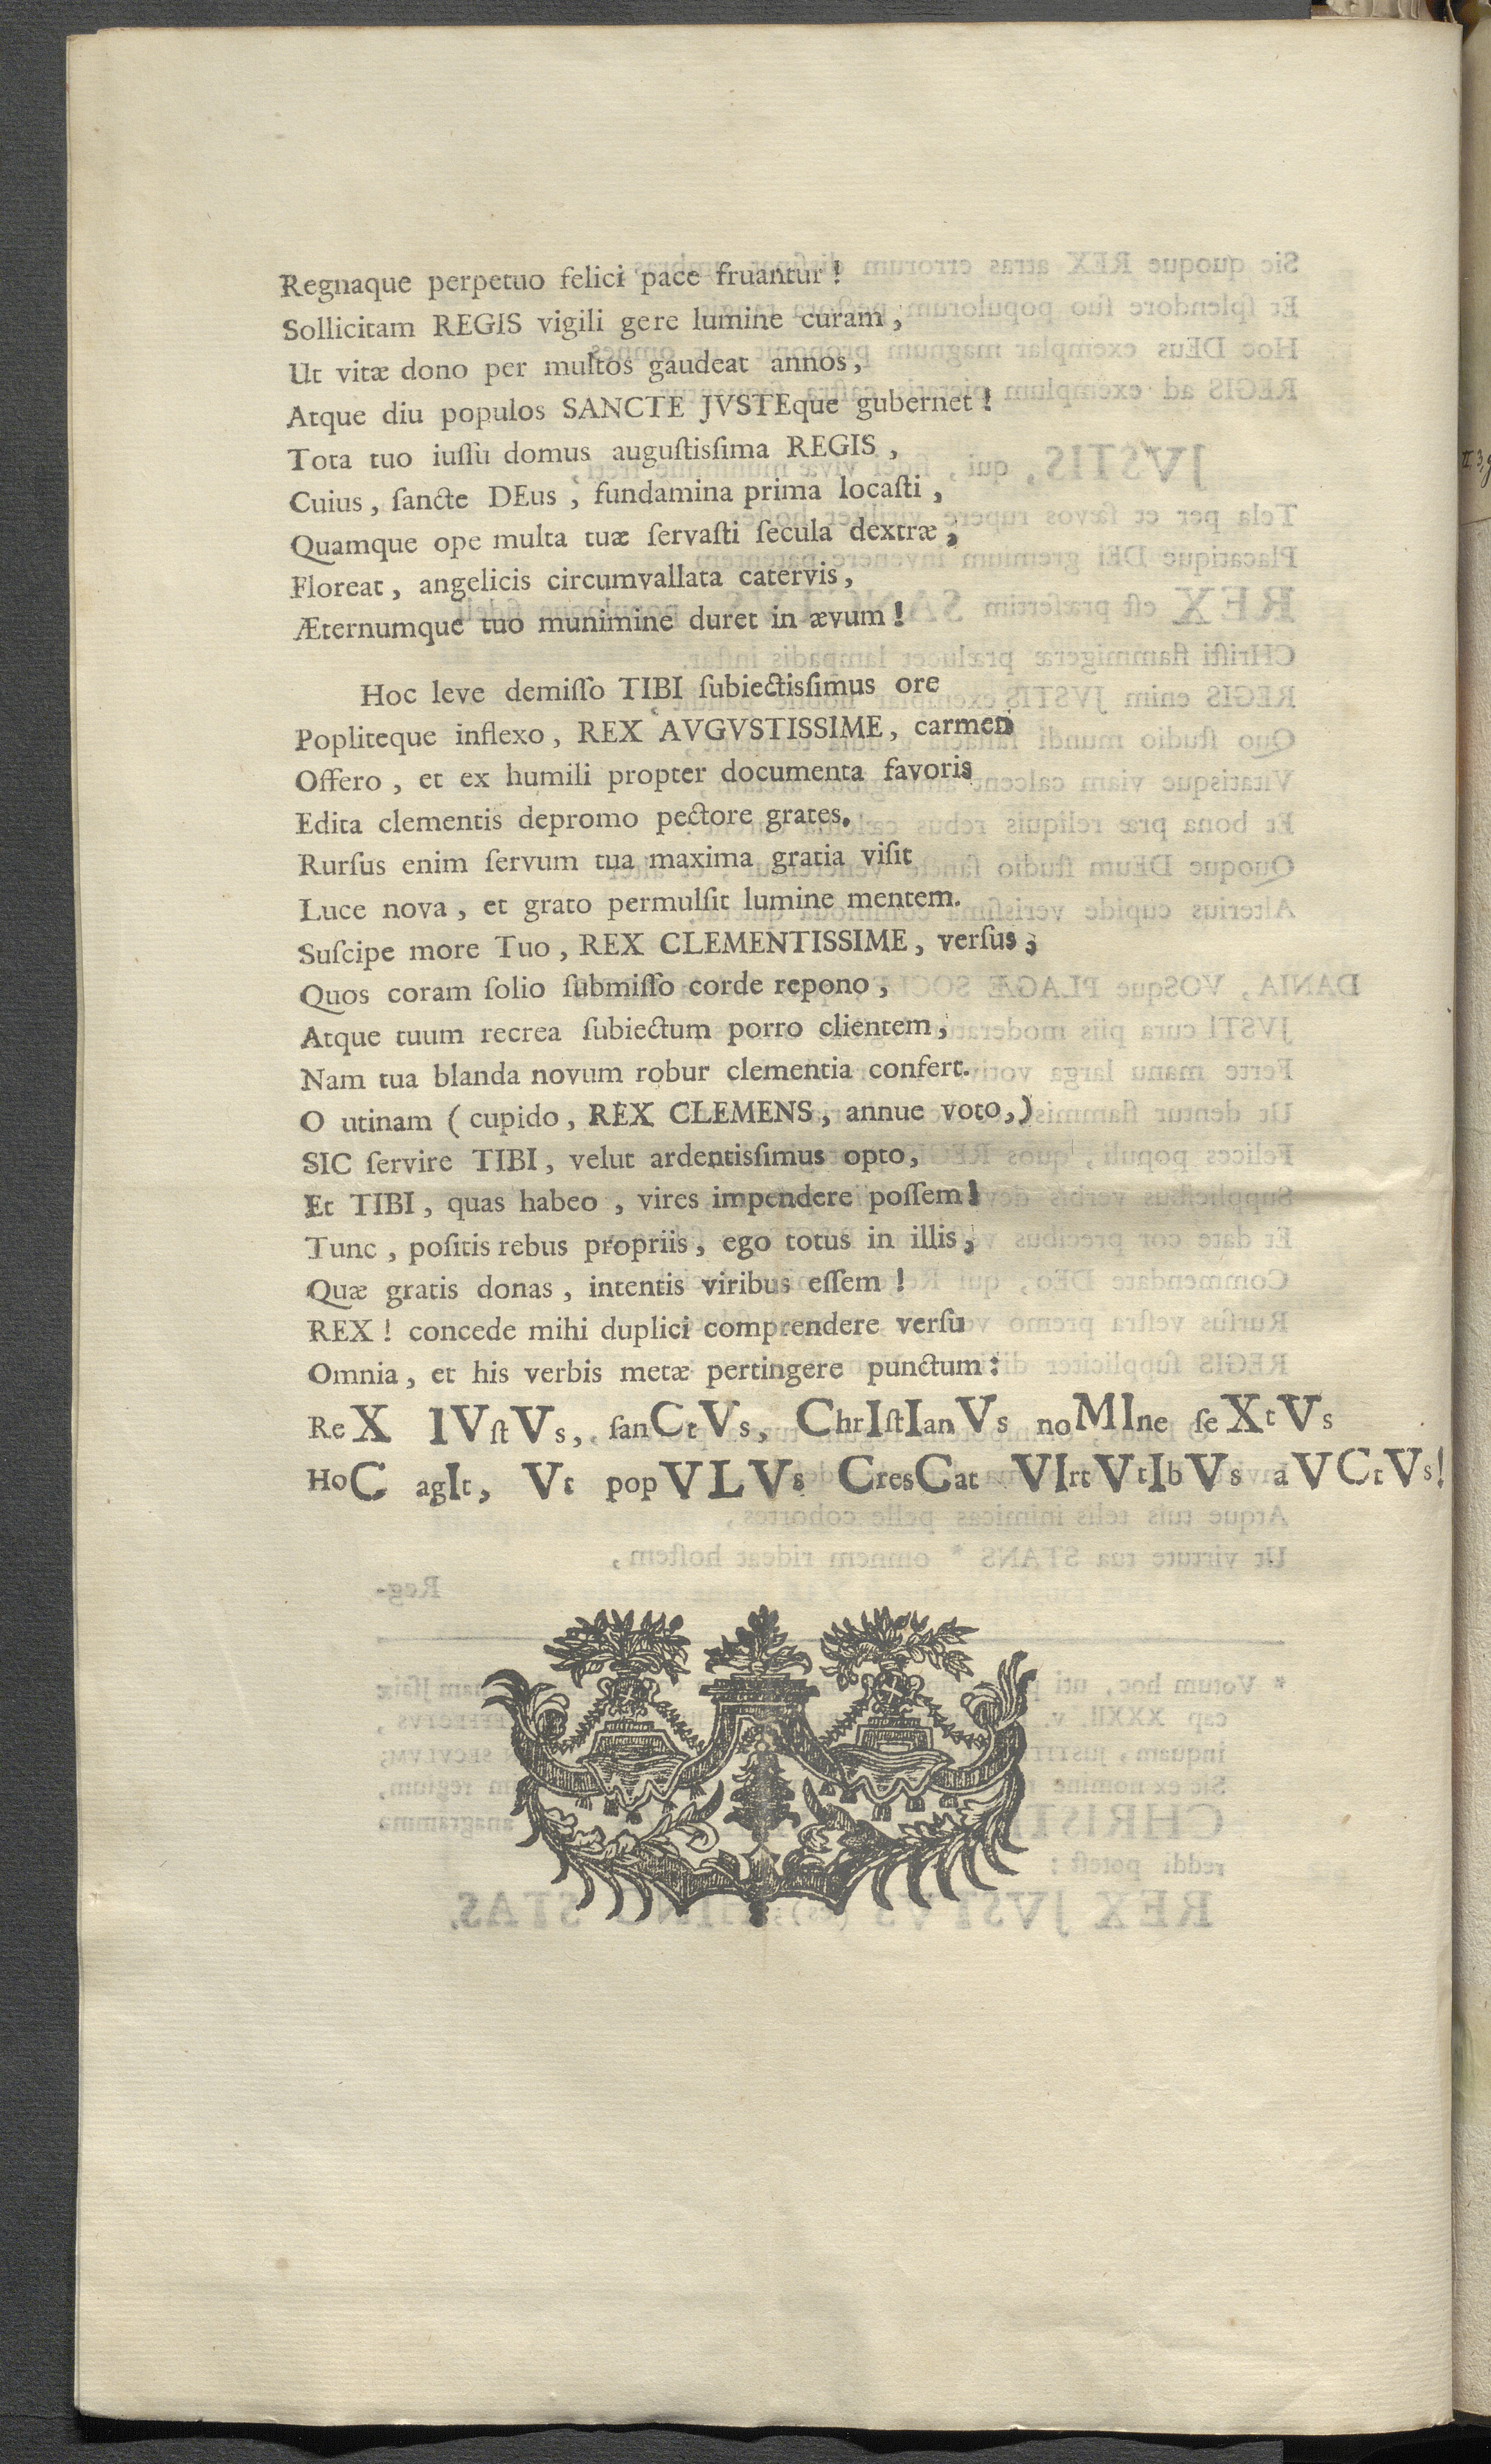 Regnaque perpetuo felici pace fruantur!
Sollicitam REGIS vigili gere lumine curam,
Ut vitæ dono per multos gaudeat annos,
Atque diu populos SANCTE JVSTEque gubernet!
Tota tuo iuſſu domus auguſtisſima REGIS,
Cuius, ſancte DEus, fundamina prima locaſti,
Quamque ope multa tuæ ſervaſti ſecula dextræ,
Floreat, angelicis circumvallata catervis,
Æternumque tuo munimine duret in ævum!
Hoc leve demiſſo TIBI ſubiectisſimus ore
Popliteque inflexo, REX AVGVSTISSIME, carmen
Offero, et ex humili propter documenta favoris
Edita clementis depromo pectore grates.
Rurſus enim ſervum tua maxima gratia viſit
Luce nova, et grato permulſit lumine mentem.
Suſcipe more Tuo, REX CLEMENTISSIME, verſus,
Quos coram ſolio ſubmiſſo corde repono,
Atque tuum recrea ſubiectum porro clientem,
Nam tua blanda novum robur clementia confert.
O utinam (cupido, REX CLEMENS, annue voto,)
SIC ſervire TIBI, velut ardentisſimus opto,
Et TIBI, quas habeo, vires impendere poſſem!
Tunc, poſitis rebus propriis, ego totus in illis,
Quæ gratis donas, intentis viribus eſſem!
REX! concede mihi duplici comprendere verſu
Omnia, et his verbis metæ pertingere punctum:
ReX IVſtVs, ſanCtVs, ChrIſtIanVs noMIne ſeXtVs
HoC agIt, Vt popVLVs CresCat VIrtVtIbVs aVCtVs!